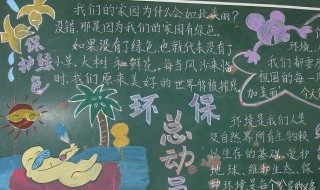 我们的家园为什么会如此美丽?
没错,那是因为我们的家园有绿色。
如果没了绿色,也就代表没有了
小草、大树和鲜花,每当风沙来临
时,我们原来美好的世界
保护绿色
环保
总动员
环境是我们人类
及自然界所有生物赖
以生存的基础,爱护
地球、维护生态、保
护环境是每个公民的义
环境,
我们都要
祖国的每一
加美丽!